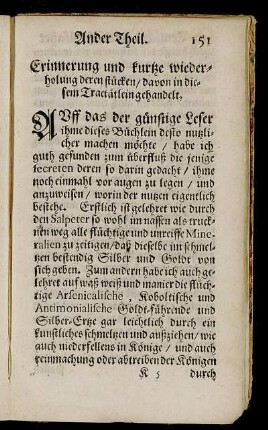 Ander Theil. 151
Erinnerung und kurtze wieder-
holung deren stücken / davon in die-
sem Tractätlein gehandelt.
AUff das der günstige Leser
ihme dieses Büchlein desto nutzli-
cher machen möchte / habe ich
guth gefunden zum überfluß die jenige
secreten deren so darin gedacht / ihme
noch einmahl vor augen zu legen / und
anzuweisen / worin der nutzen eigentlich
bestehe. Erstlich ist gelehret wie durch
den Salpeter so wohl im nassen als truck-
nen weg alle flüchtige und unreiffe Mine-
ralien zu zeitigen / daß dieselbe im schmel-
tzen bestendig Silber und Goldt von
sich geben. Zum andern habe ich auch ge-
lehret auf waß weiß und manier die flüch-
tige Arsenicalische, Koboltische und
Antimonialische Goldt-führende und
Silber-Ertze gar leichtlich durch ein
künstliches schmeltzen und außziehen / wie
auch niederfellens in Könige / und auch
reinmachung oder abtreiben der Königen
K 5 durch